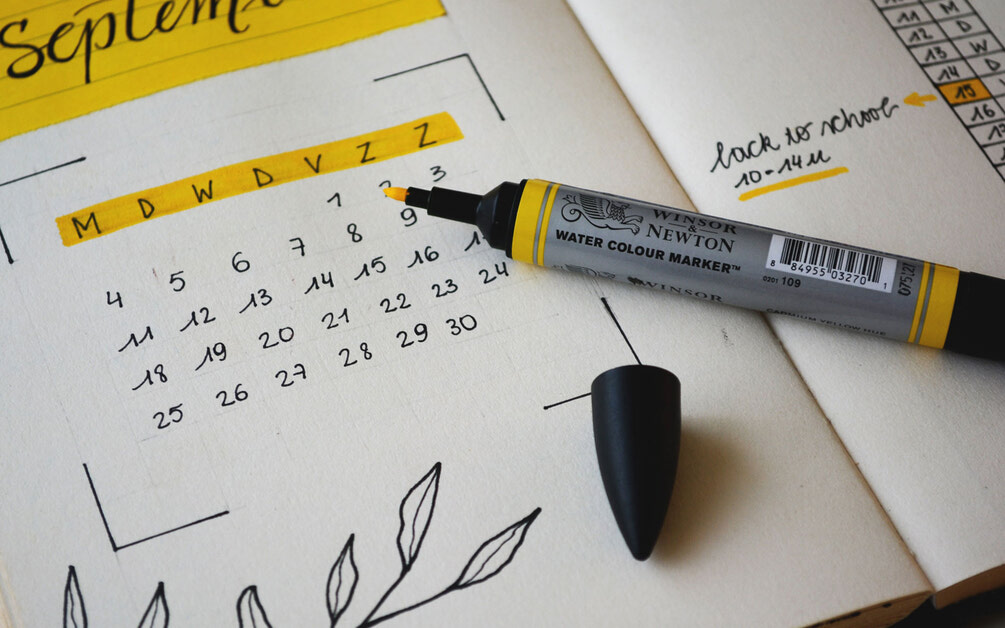 September
M D W D V Z Z
1 2 3
4 5 6 7 8 9
11 12 13 14 15 16
18 19 20 21 22 23 24
25 26 27 28 29 30
11 M
12 D
13 W
14 D
15
16
back to school
10-14u
WINSOR
& NEWTON
WATER COLOUR MARKER™
WINSOR
8 84955 03270 1
0201 109
CADMIUM YELLOW HUE